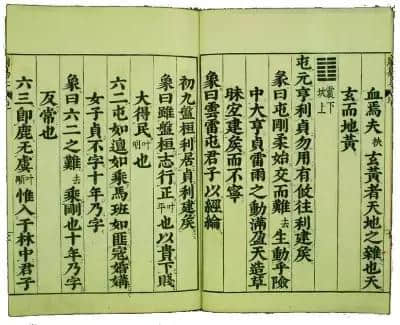 血焉夫扶玄黄者天地之雜也天
玄而地黄
震下
坎上
屯元亨利貞勿用有攸往利建矦
彖曰屯剛柔始交而難去生動乎險
中大亨貞雷雨之動滿盈天造草
昧宜建矦而不寧
象曰雲雷屯君子以經綸
初九盤桓利居貞利建矦
象曰雖盤桓志行正叶平也以貴下賤
大得民叶明也
六二屯如邅如乘馬班如匪寇婚媾
女子貞不字十年乃字
象曰六二之難去乘剛也十年乃字
反常也
六三即鹿无虞惟入于林中君子